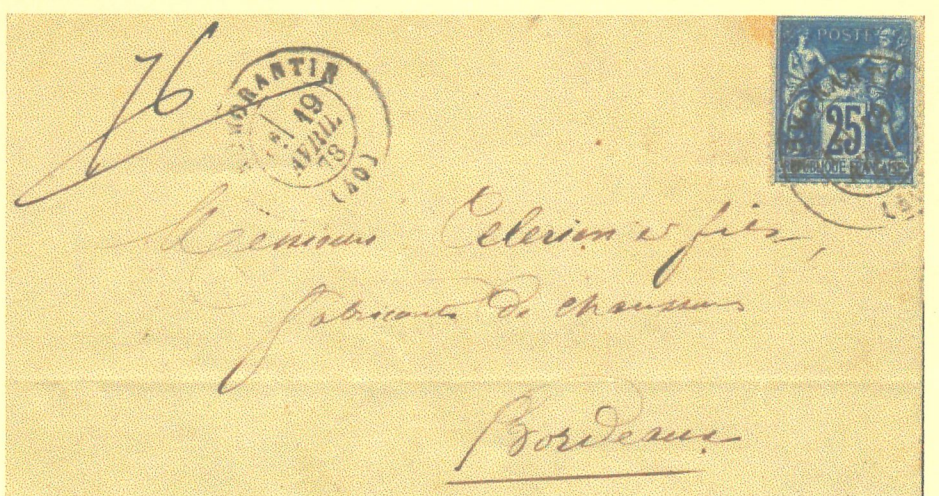 76
ROMORANTIN
19
AVRIL
78
(40)
POSTE
25
REPUBLIQUE FRANCAISE
Messieurs Celerier et fils,
fabricants de chaussures
Bordeaux